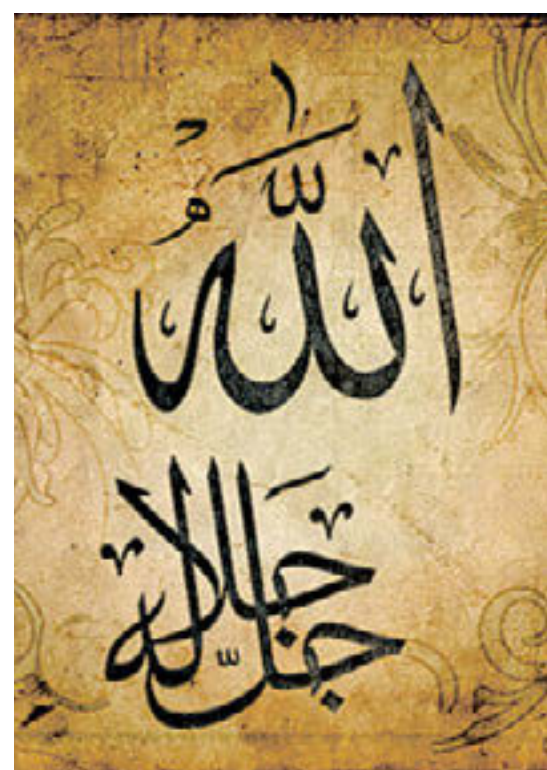 اللّٰهُ
جلّ جلاله